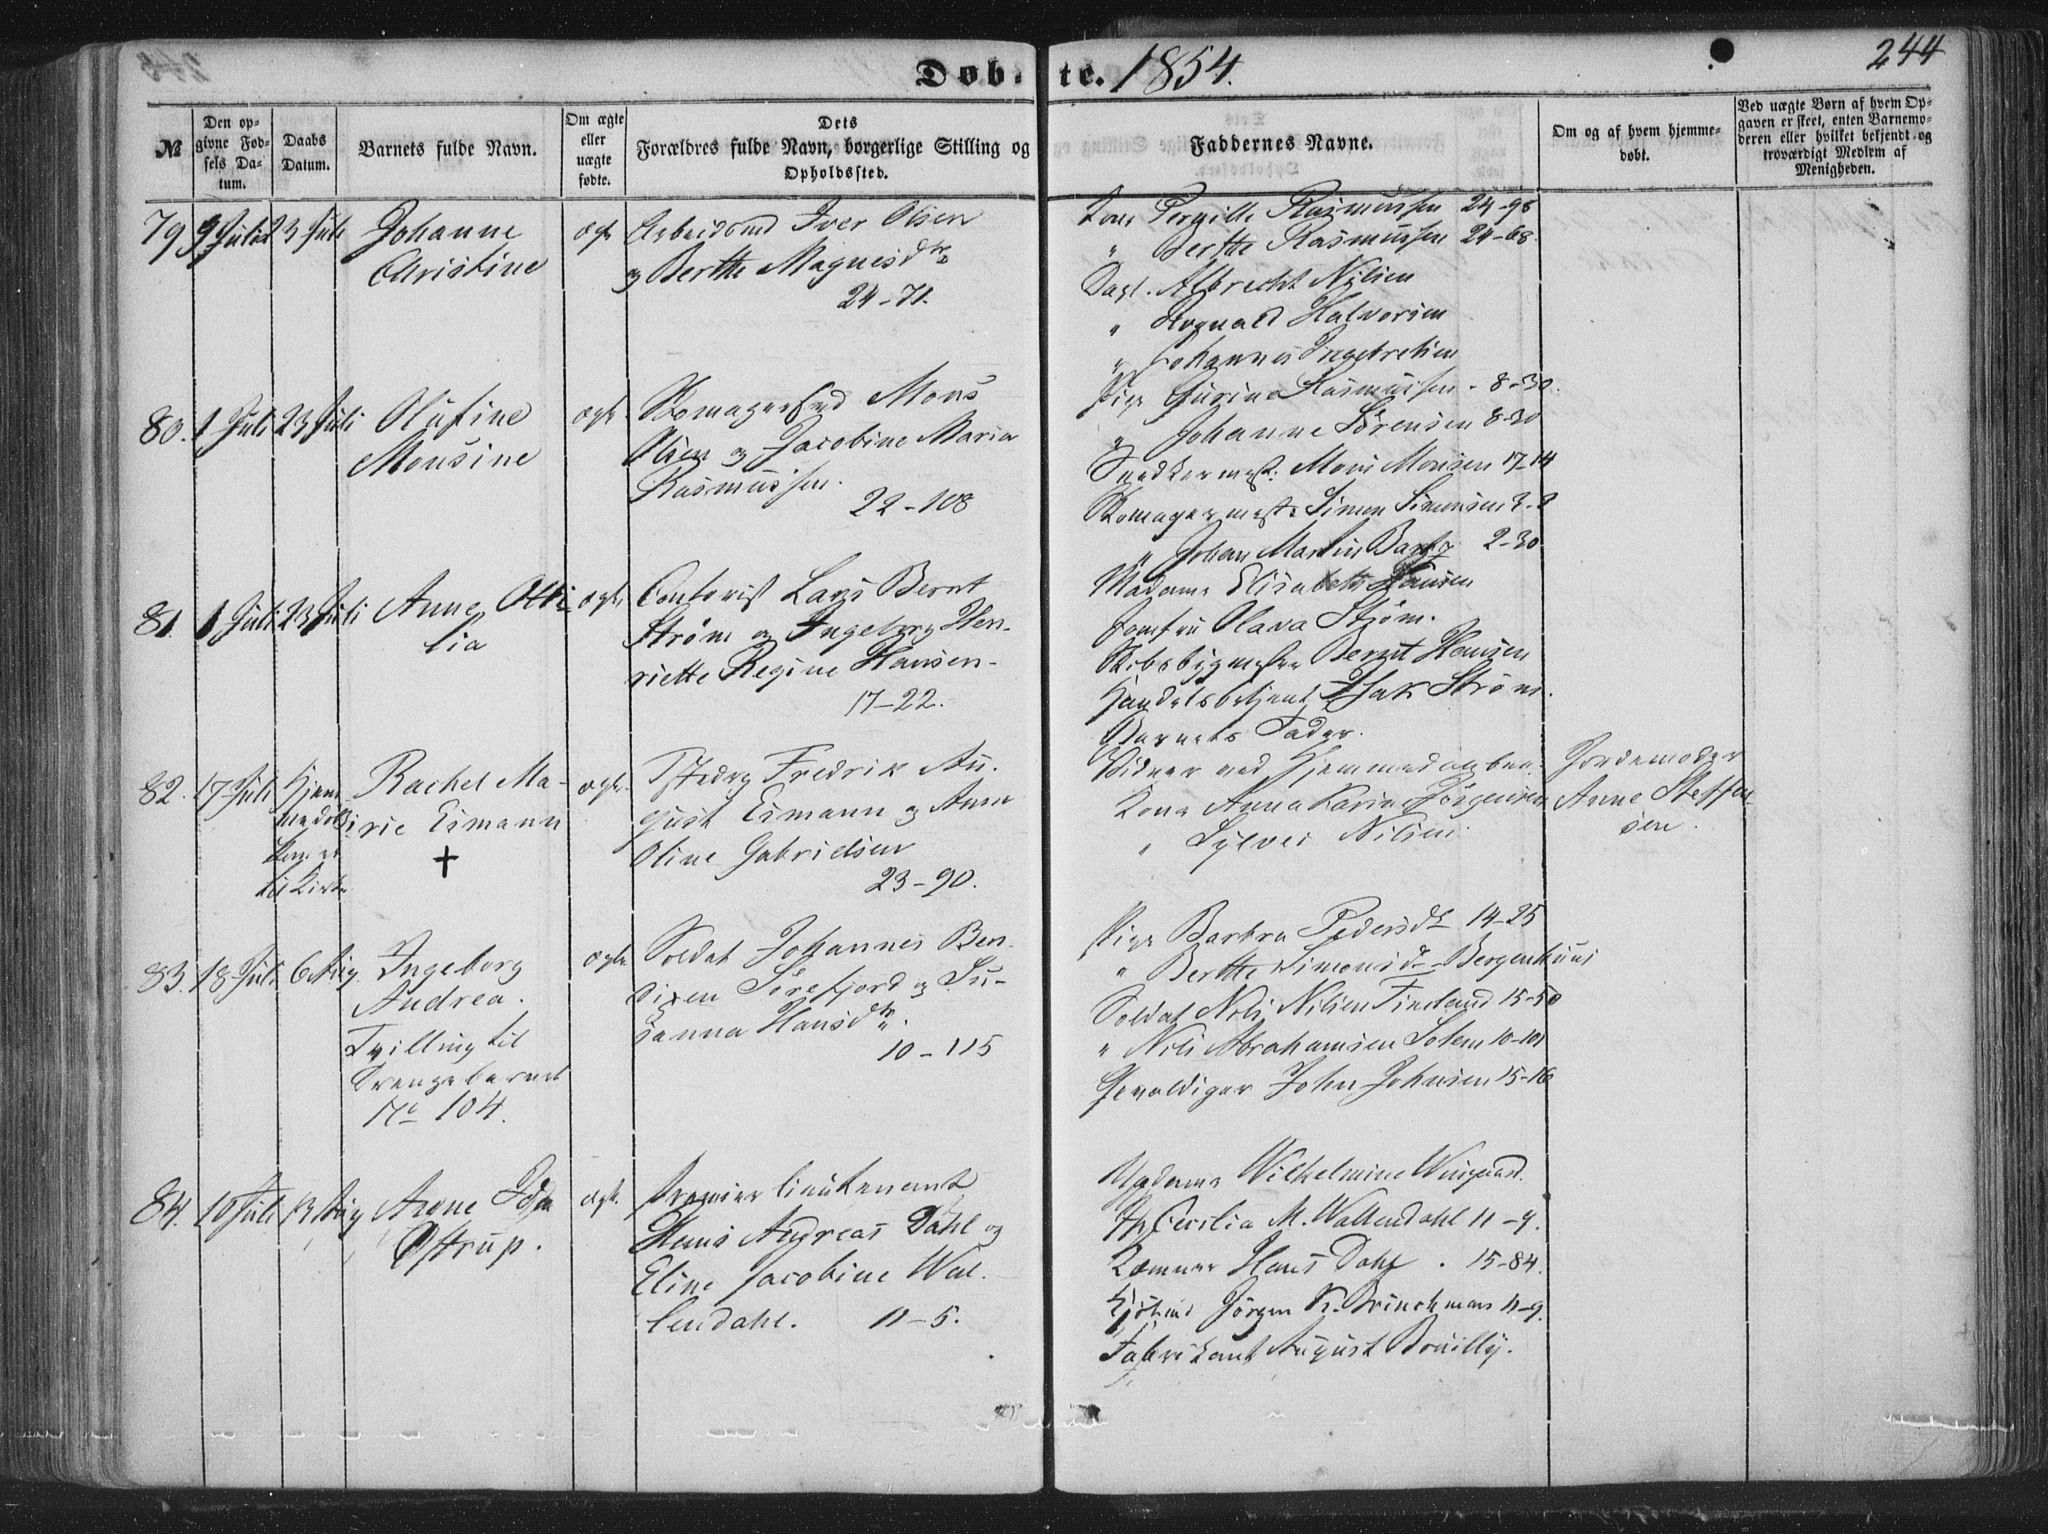 Døbte. 1854.
244
№
Den opgivne Fødsels Datum.
Daabs Datum.
Barnets fulde Navn.
Om ægte eller uægte fødte.
Dets Forældres fulde Navn, borgerlige Stilling og Opholdssted.
Faddernes Navne.
Om og af hvem hjemmedøbt.
Ved uægte Børn af hvem Opgaven er skeet, enten Barnemoderen eller hvilket bekjendt og troværdigt Medlem af Menigheden.
79 9 Juli 23 Juli
Johanne
Christine
ægte
Arbeidsmd Iver Olsen
og Berthe Magnesdtr
24-71.
Kone Pernille Rasmussen 24-98
" Berthe Rasmussen 24-68.
Dagl. Albrecht Nilsen
" Halvorsen
" Johannes Ingebretsen
80. 1 Juli 23 Juli
Olufine
Monsine
ægte
Skomagersvd Mons
Olsen og Jacobine Maria
Rasmussen.
22-108
Pige Gurine Rasmussen - 8-30.
" Johanne Sørensen 8-30
Snedkermest. Mons Monsen 17-14
Skomagermest. Simon Simonsen 2-2
" Johan Martin 2-30
81. 1 Juli 23 Juli
Anne Otti
lia
ægte
Contorist Lars Bernt
Strøm og Ingeborg Hen-
riette Regine Hansen-
17-22.
Madame Elisabeth Hansen
Jomfru Olava Strøm.
Skibsbygmester Bernt Hansen
Handelsbetjent Isak Strøm.
Barnets Fader.
82. 17 Juli
Hjem
medøbt
til Kirke
Rachel Ma-
rie Eimann
✝
ægte.
Fredrik Au-
gust Eimann og Anne
Oline Gabrielsen
23-90.
Vidner ved Hjemmedaaben
Kone Anna Karine Jørgensen
" Sylvei Nilsen.
Jordemoder
Anne Steffen-
sen.
83. 18 Juli 6 Aug
Ingeborg
Andrea.
Tvilling til
Drengebarnet
No 104.
ægte
Soldat Johannes Ben-
dixen Sørefjord og Su-
sanna Hansdtr.
10-115
Pige Barbra Pedersdt 14-25
" Berthe Simonsd- Bergenhuus
Soldat Nils Nilsen 15-50
" Nils Abrahamsen Solem 10-101
Gevaldiger John Johnsen 15-16
84. 10 Juli 13 Aug
Arone Ida
Østrup.
ægte.
Premierlieutenant
Hans Andreas Dahl og
Eline Jacobine Wal-
lendahl. 11-5.
Madame Wilhelmine Wingaard.
Cecilia M. Wallendahl 11-9.
Kæmner Hans Dahl . 15-84.
Kjøbmd Jørgen K. Brinchman 11-9.
Fabrikant August Bruilly.